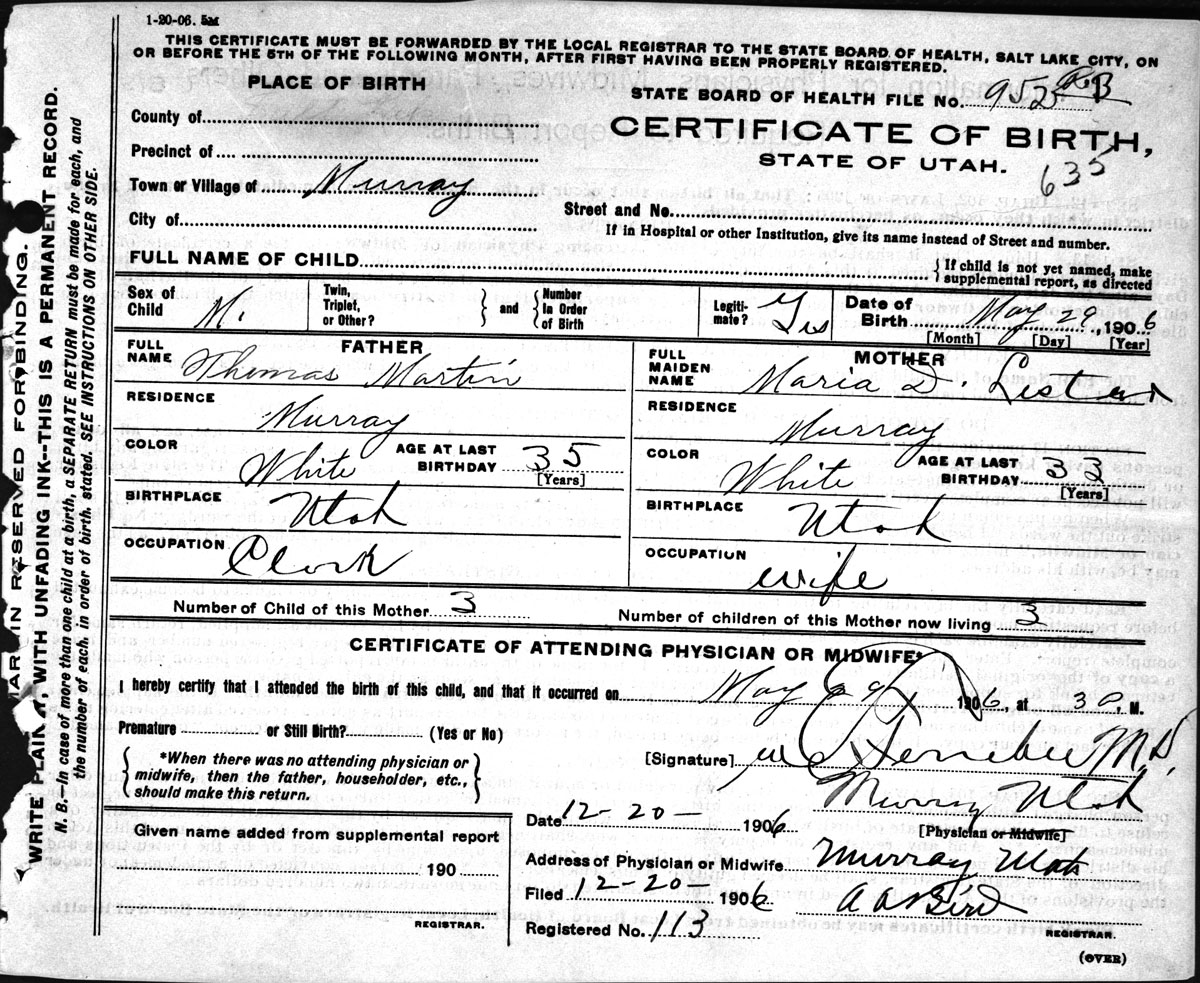 1-20-06. 5M
THIS CERTIFICATE MUST BE FORWARDED BY THE LOCAL REGISTRAR TO THE STATE BOARD OF HEALTH, SALT LAKE CITY, ON
OR BEFORE THE 5TH OF THE FOLLOWING MONTH, AFTER FIRST HAVING BEEN PROPERLY REGISTERED.
PLACE OF BIRTH
STATE BOARD OF HEALTH FILE No. 952 RB
County of
CERTIFICATE OF BIRTH,
Precinct of
STATE OF UTAH.
635
Town or Village of Murray
Street and No.
City of
If in Hospital or other Institution, give its name instead of Street and number.
FULL NAME OF CHILD
If child is not yet named, make supplemental report, as directed
Sex of Child M. Twin, Triplet, or Other? and Number in Order of Birth Legiti-mate? Yes Date of Birth May 29, 1906
[Month] [Day] [Year]
FATHER
FULL NAME Thomas Martin
RESIDENCE Murray
COLOR White AGE AT LAST BIRTHDAY 35
[Years]
BIRTHPLACE Utah
OCCUPATION Clerk
MOTHER
FULL MAIDEN NAME Maria D. Lister
RESIDENCE Murray
COLOR White AGE AT LAST BIRTHDAY 33
[Years]
BIRTHPLACE Utah
OCCUPATION wife
Number of Child of this Mother 3 Number of children of this Mother now living 3
CERTIFICATE OF ATTENDING PHYSICIAN OR MIDWIFE*
I hereby certify that I attended the birth of this child, and that it occurred on May 29 1906, at 3 a. M.
Premature or Still Birth? (Yes or No)
*When there was no attending physician or
midwife, then the father, householder, etc.,
should make this return.
[Signature] M.D.
Murray Utah
Date 12-20- 1906
[Physician or Midwife]
Address of Physician or Midwife Murray Utah
Filed 12-20- 1906 A A Bird
Registered No. 113 REGISTRAR.
Given name added from supplemental report
190
REGISTRAR.
(OVER)
MARGIN RESERVED FOR BINDING.
WRITE PLAINLY WITH UNFADING INK--THIS IS A PERMANENT RECORD.
N. B.--In case of more than one child at a birth, a SEPARATE RETURN must be made for each, and
the number of each, in order of birth, stated. SEE INSTRUCTIONS ON OTHER SIDE.